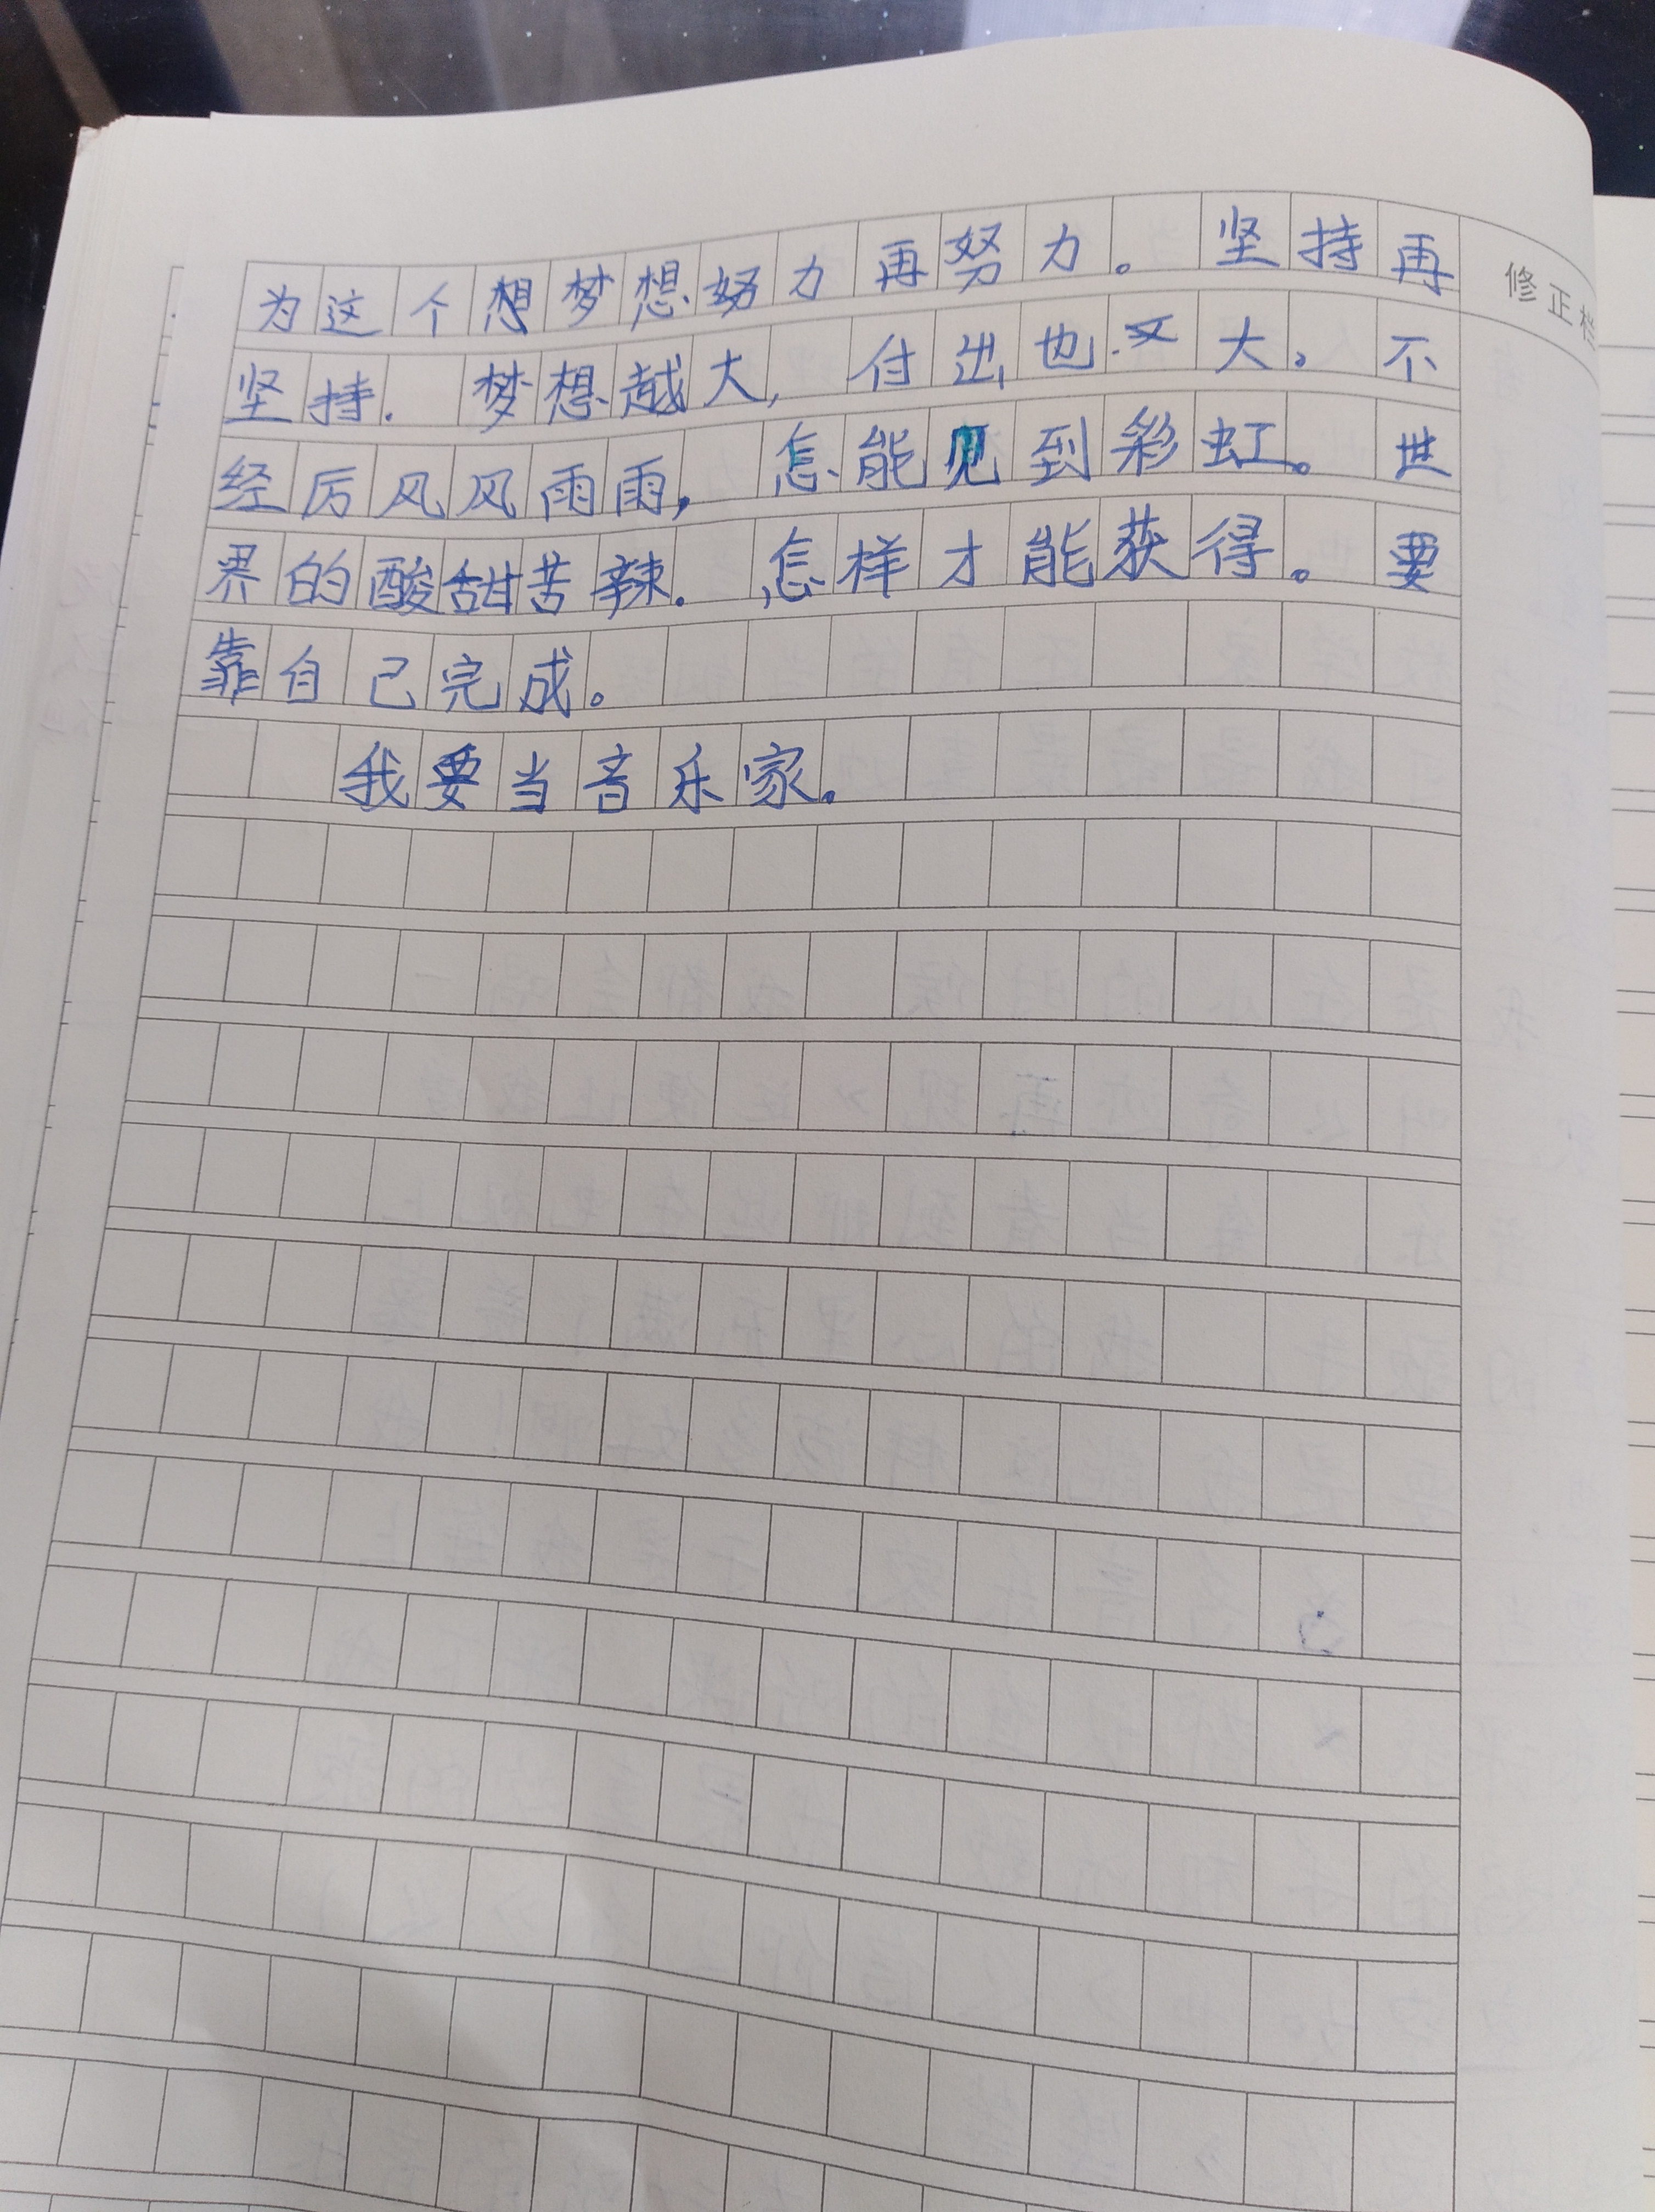 为这个想梦想努力再努力。坚持再
修正栏
坚持. 梦想越大, 付出也又大。不
经厉风风雨雨, 怎能见到彩虹。世
界的酸甜苦辣. 怎样才能获得。要
靠自己完成。
我要当音乐家。